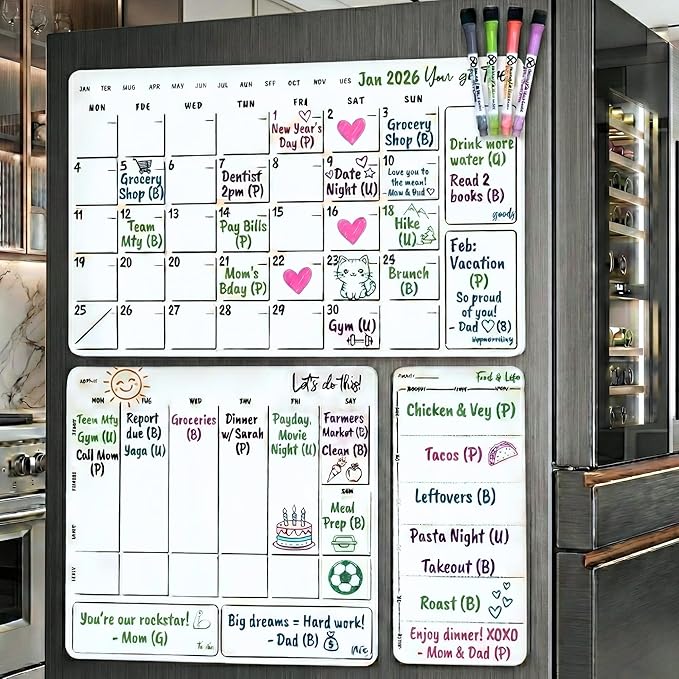 JAN TER MUG APR MAY JUN JUL AUN SFF OCT NOV UES Jan 2026
MON FDE WED TUN FRI SAT SUN
1 2 3
New Year's
Day (P)
Grocery
Shop (B)
4 5 6 7 8 9 10
Grocery
Shop (B)
Dentist
2pm (P)
Date
Night (U)
Love you to
the mean!
Mom & Dad
11 12 13 14 15 16 18
Team
Mty (B)
Pay Bills
(P)
Hike
(U)
19 19 20 21 22 23 24
Mom's
Bday (P)
Brunch
(B)
25 26 27 28 29 30
Gym (U)
Drink more
water (Q)
Read 2
books (B)
goods
Feb:
Vacation
(P)
So proud
of you!
- Dad (8)
Let's do this!
MON TUG WED THU FRI SAT
Teen Mty
Gym (U)
Call Mom
(P)
Report
due (B)
Yaga (U)
Groceries
(B)
Dinner
w/ Sarah
(P)
Payday,
Movie
Night (U)
Farmers
Market (B)
Clean (B)
SUN
Meal
Prep (B)
You're our rockstar!
- Mom (G)
Big dreams = Hard work!
- Dad (B)
Food & Life
Chicken & Vey (P)
Tacos (P)
Leftovers (B)
Pasta Night (U)
Takeout (B)
Roast (B)
Enjoy dinner! XOXO
- Mom & Dad (P)